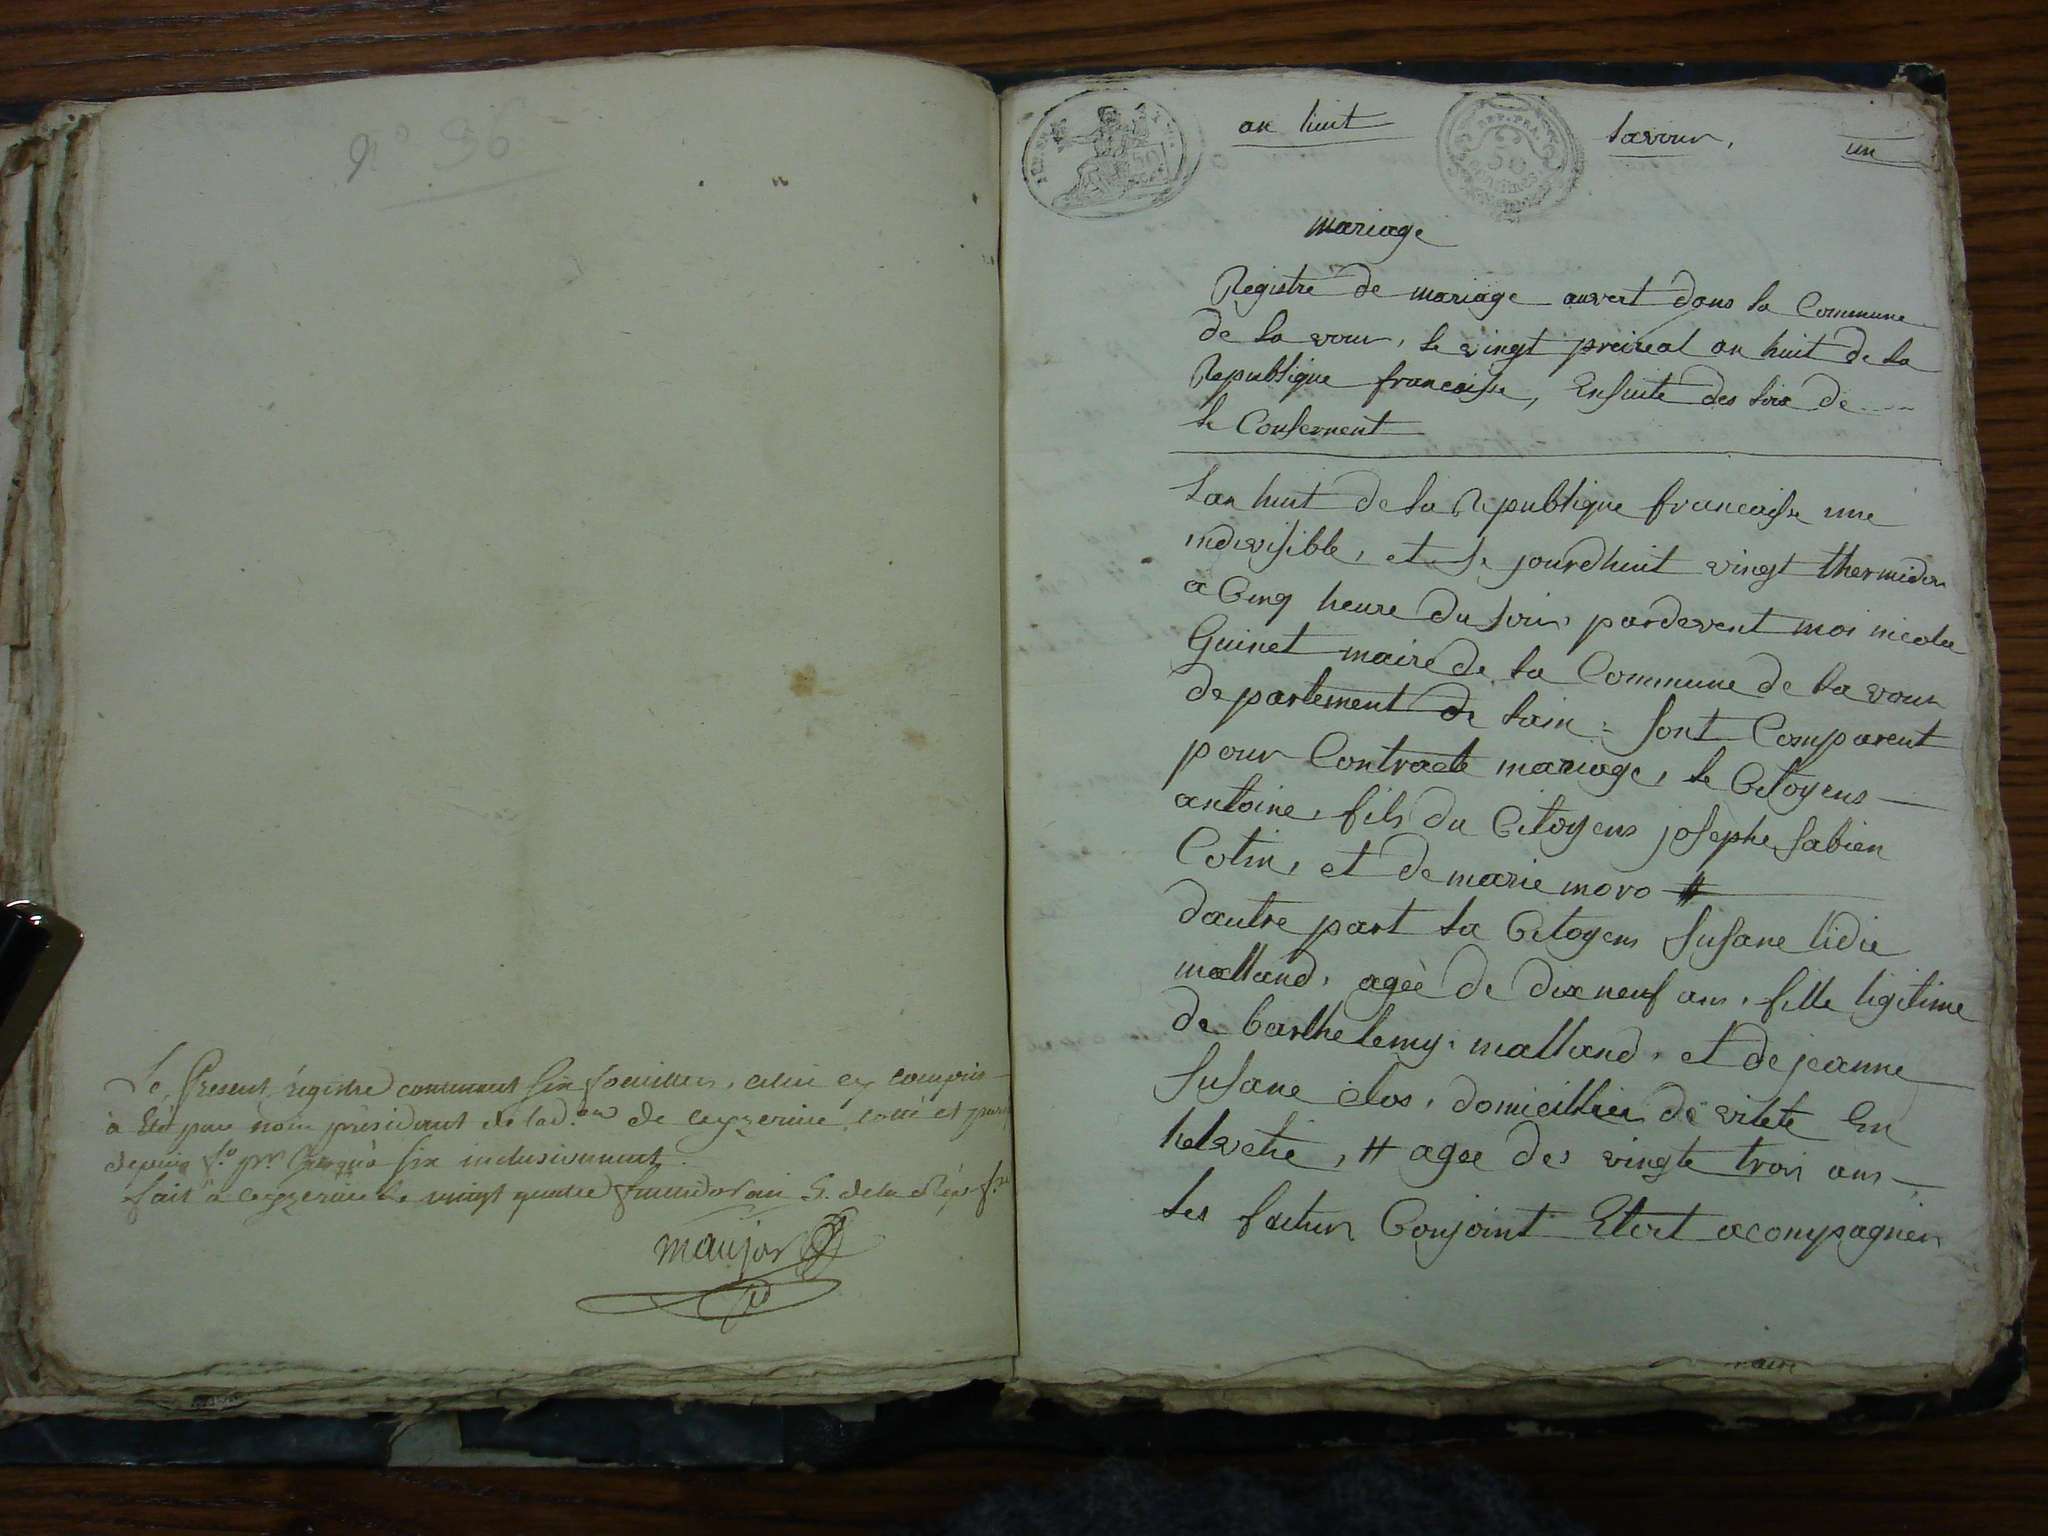 N° 36
Le Present registre contenant six feuillets, celui cy compris
à Eté par nous présidant de lad.on de ceyzerieu, cotté et
depuis f.o pr. jusqu'a six inclusivement.
fait à ceyzerieu le vingt quatre an 8. de la Rép. f.se
maujot
an huit
lavour,
un
REP. FRA.
50
mariage
Registre de mariage auvert dans la Commune
de la vour, le vingt preireal an huit de la
Republique francaisse, Ensuite des loix de
le Consernent
Lan huit de la Republique francaisse une
indivisible, et le jourdhuit vingt thermidor
a Cinq heure du soir, pardevent moi nicolas
Guinet maire de la Commune de la vour
departement de lain : sont Comparent
pour Contracte mariage, le Citoyens
antoine, fils du Citoyens josephe fabien
Cotin, et de marie moro #
dautre part la Citoyens Susane lidie
malland, ageè de dixneuf ans, fille ligitime
de barthelemy malland, et de jeanne
Susane clos, domicillier de En
helvetie, # agee des vingte trois ans
les futur Conjoint Etoit acompagnier